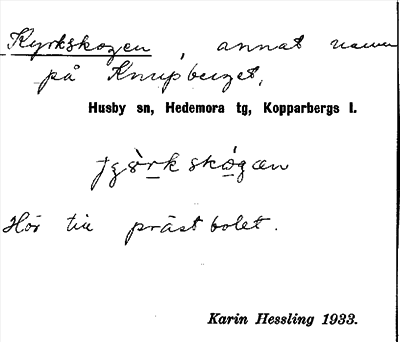 Kyrkskogen, annat namn
på Knupberget,
Husby sn, Hedemora tg, Kopparbergs l.
Hör till prästbolet.
Karin Hessling 1933.